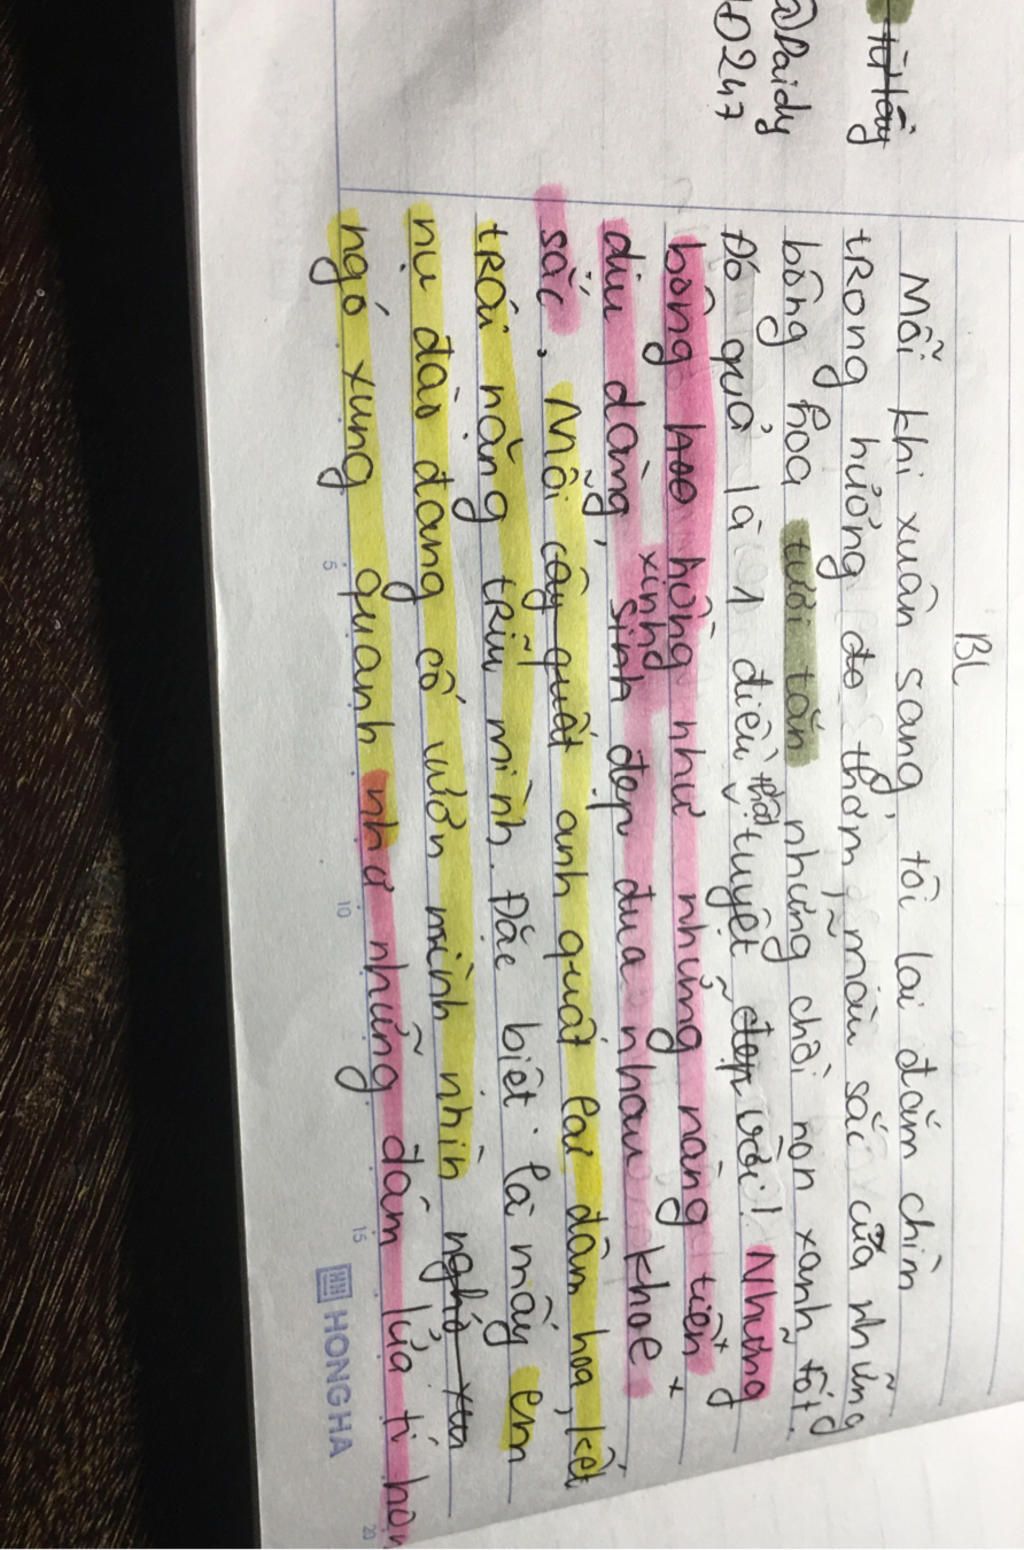 từ láy
@Daidy
Đ0247
BL
Mỗi khi xuân sang, tôi lại đắm chìm
trong hương thơm, màu sắc của những
bông hoa tươi tắn, những chồi non xanh tốt.
Đó quả là 1 điều thật tuyệt đẹp vời! Những
bông hoa hồng như những nàng tiên
dịu dàng, xinh đẹp đua nhau khoe
sắc. Mỗi cây quất anh quất lại đâm hoa, kết
trái nặng trĩu mình. Đặc biệt là mấy em
nụ đào đang cố vươn mình nhìn
ngó xung quanh như những đám lửa tí hon
5
10
15
20
HONG HA